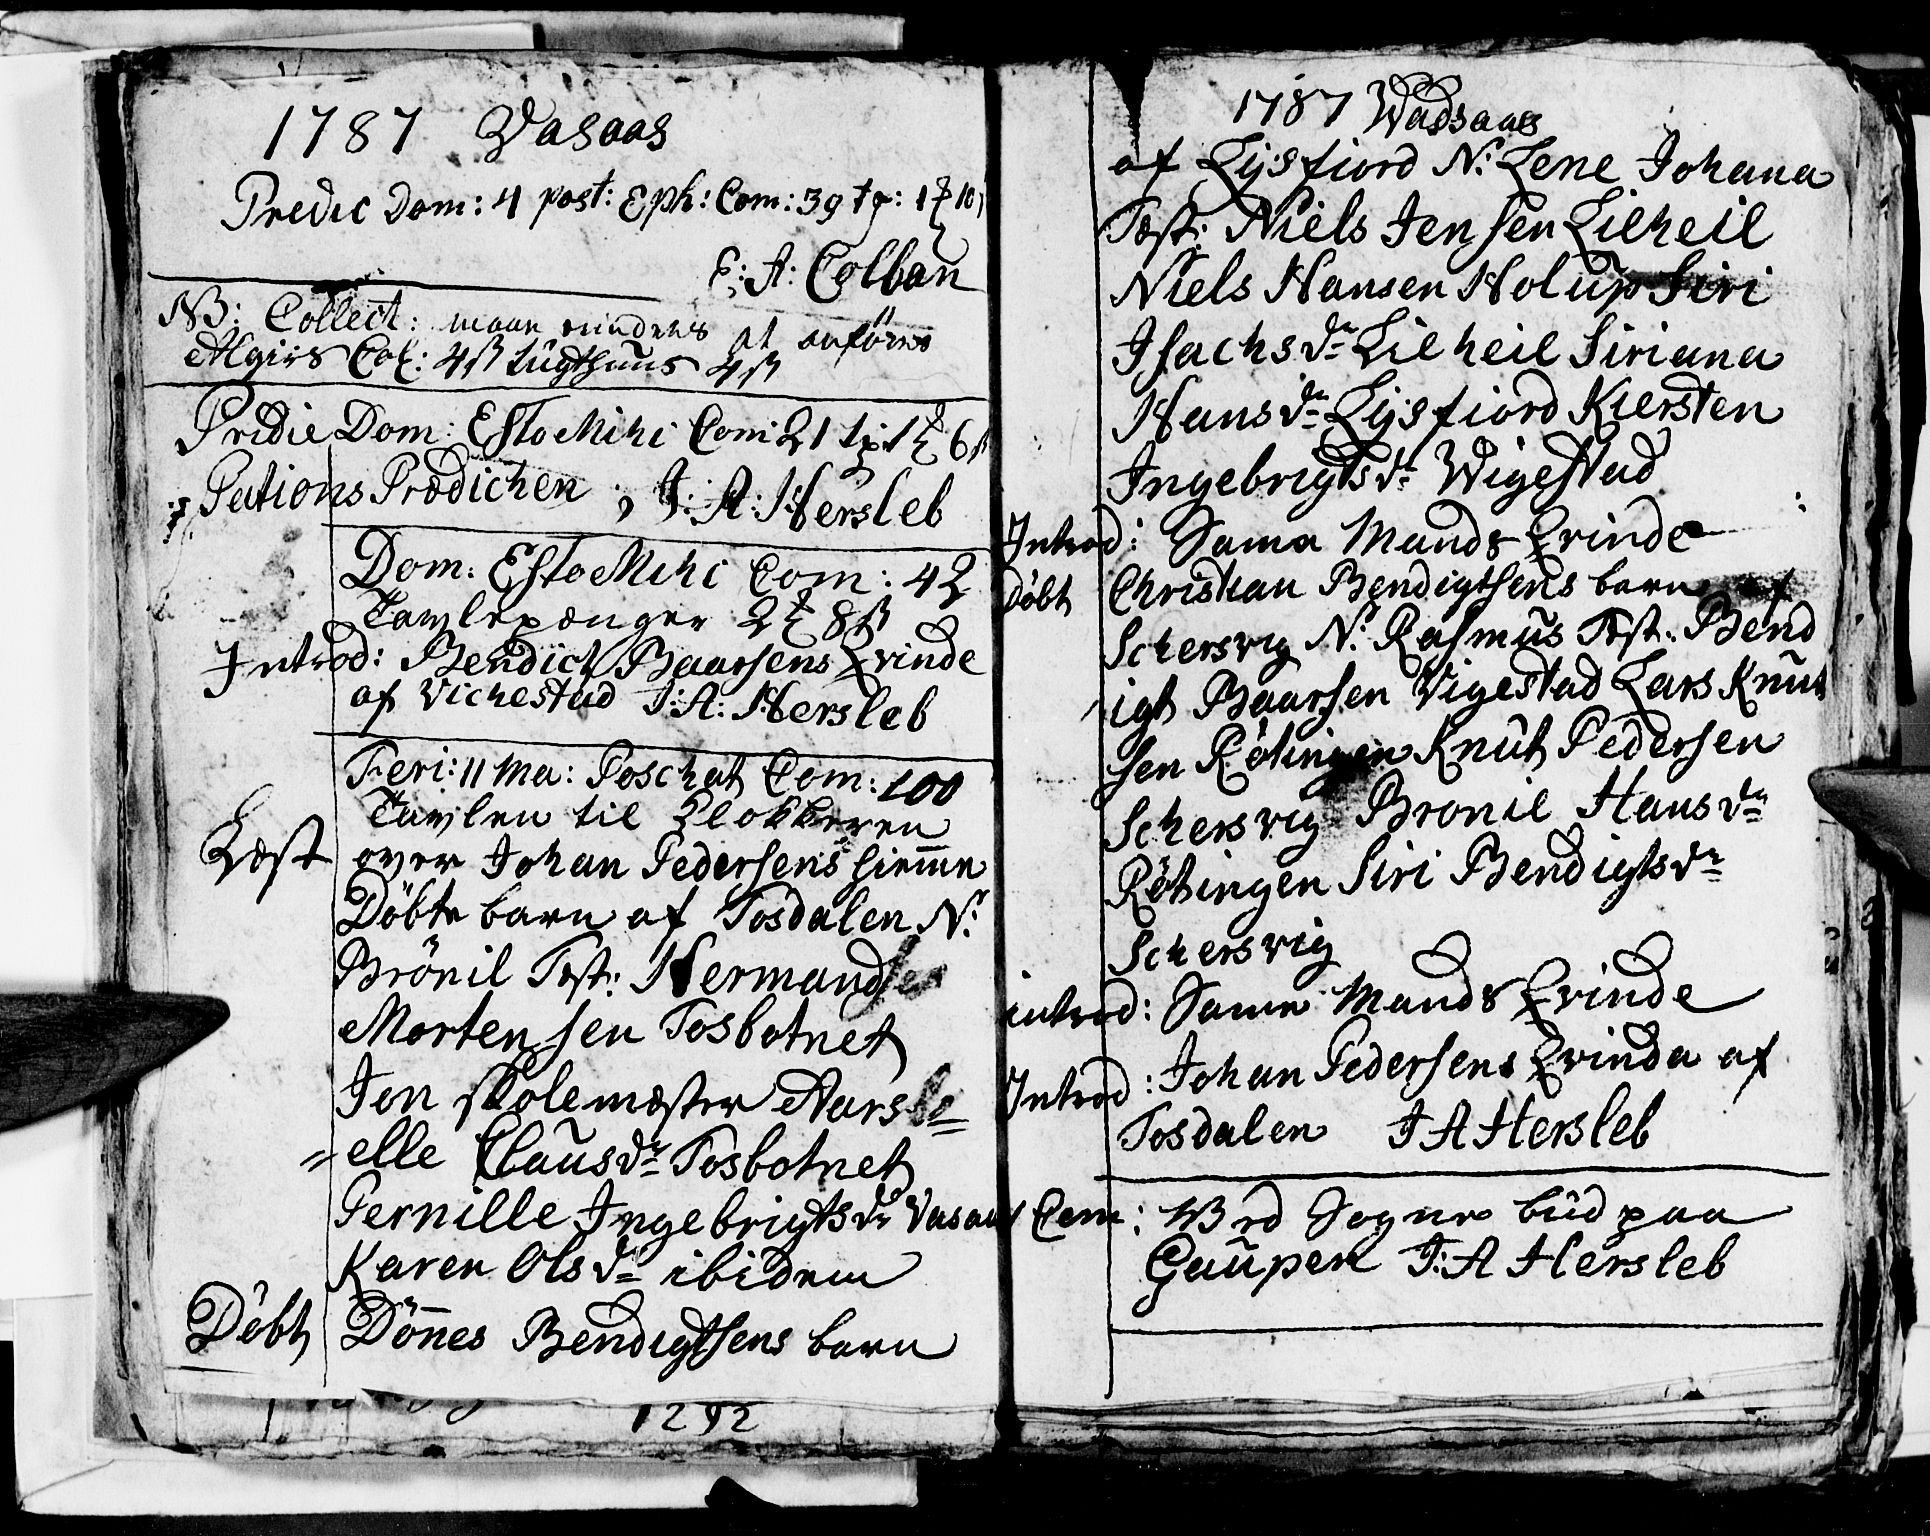 1787 Vasaas
Predic Dom: 4 post: Eph: Com: 39 tp: 1
E: A: Colban
NB: Collect: maae erindres at anföres
Algirs Col: 4ß tügthuus 4ß
Pridie Dom: Esto Mihi Com: 21 tp: 1 6ß
Pations Prædichen J: A: Hersleb
Dom: Esto Mihi Com: 42
Tavlepænger 2 8ß
Introd: Bendict Baarsens Qvinde
af Vichestad J: A: Hersleb
Feri: 11 Ma: Poschat Com: 100
Tavlen til Klokkeren
Læst over Johan Pedersens hiemme
Döbte barn af Tosdalen N:
Brönil Test: Hermand
Mortensen Tosbotnet
Jen skolemæster Aars
elle Clausdr Tosbotnet
Pernille Ingebrigtsdr Vasaas
Karen Olsdr ibidem
Döbt Dönnes Bendigtsens barn
1292
1787 Wadsaas
af Lijsfiord N: Lene Johana
Test: Niels Jensen Lilheil
Niels Hansen Holup Siri
Isachsdr Lilheil Siriana
Hansdr Lijsfiord Kiersten
Ingebrigtsdr Wigestad
Introd: Sama Mands Qvinde
Döbt Christian Bendigtsens barn af
Schersvig N: Rasmus Test: Bend
igt Baarsen Vigestad Lars Knut
sen Rötingen Knut Pedersen
Schersvig Bronil Hansdr
Rötingen Siri Bendigtsdr
Schersvig
introd: Samme Mands Qvinde
Introd: Johan Pedersens Qvinda af
Tosdalen J A Hersleb
Com: Sogne bud paa
Gaupen J: A Hersleb